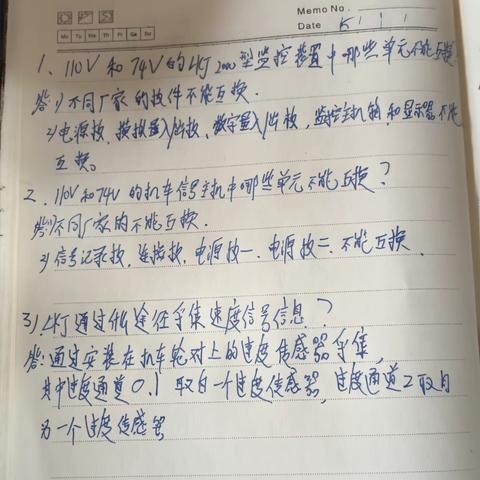 Memo No.
Date
Mo Tu We Th Fr Sa Su
1、110V和74V的LKJ2000型监控装置中哪些单元不能互换
答:1)不同厂家的软件不能互换.
2)电源板、模拟量入/出板、数字量入/出板,监控主机箱和显示器不能
互换。
2、110V和74V的机车信号主机中哪些单元不能互换?
答:1)不同厂家的不能互换.
2)信号记录板,连接板,电源板一、电源板二不能互换.
3)LKJ通过什么途径采集速度信号信息?
答:通过安装在机车轮对上的速度传感器采集,
其中速度通道0.1取自一个速度传感器,速度通道2取自
另一个速度传感器